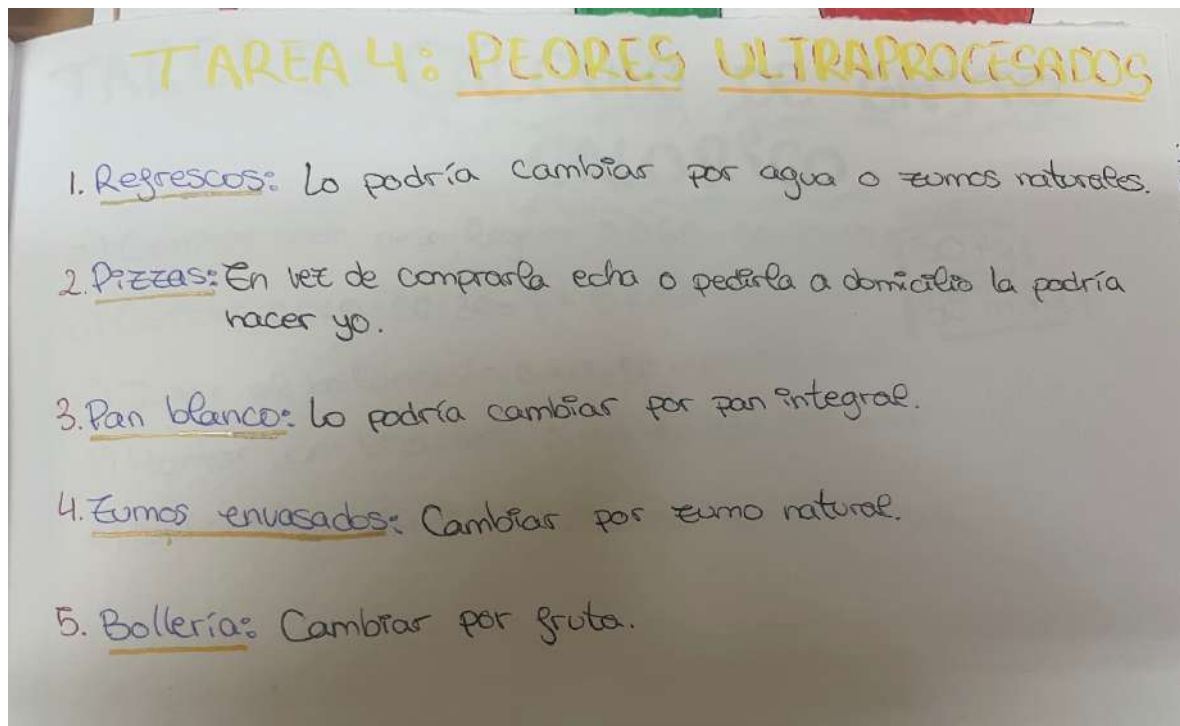 TAREA 4: PEORES ULTRAPROCESADOS
1. Refrescos: Lo podría cambiar por agua o zumos naturales.
2. Pizzas: En vez de comprarla echa o pedirla a domicilio la podría
hacer yo.
3. Pan blanco: Lo podría cambiar por pan integral.
4. Zumos envasados: Cambiar por zumo natural.
5. Bollería: Cambiar por fruta.